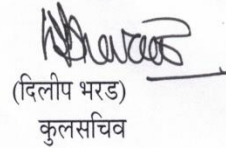 (दिलीप भरड)
कुलसचिव